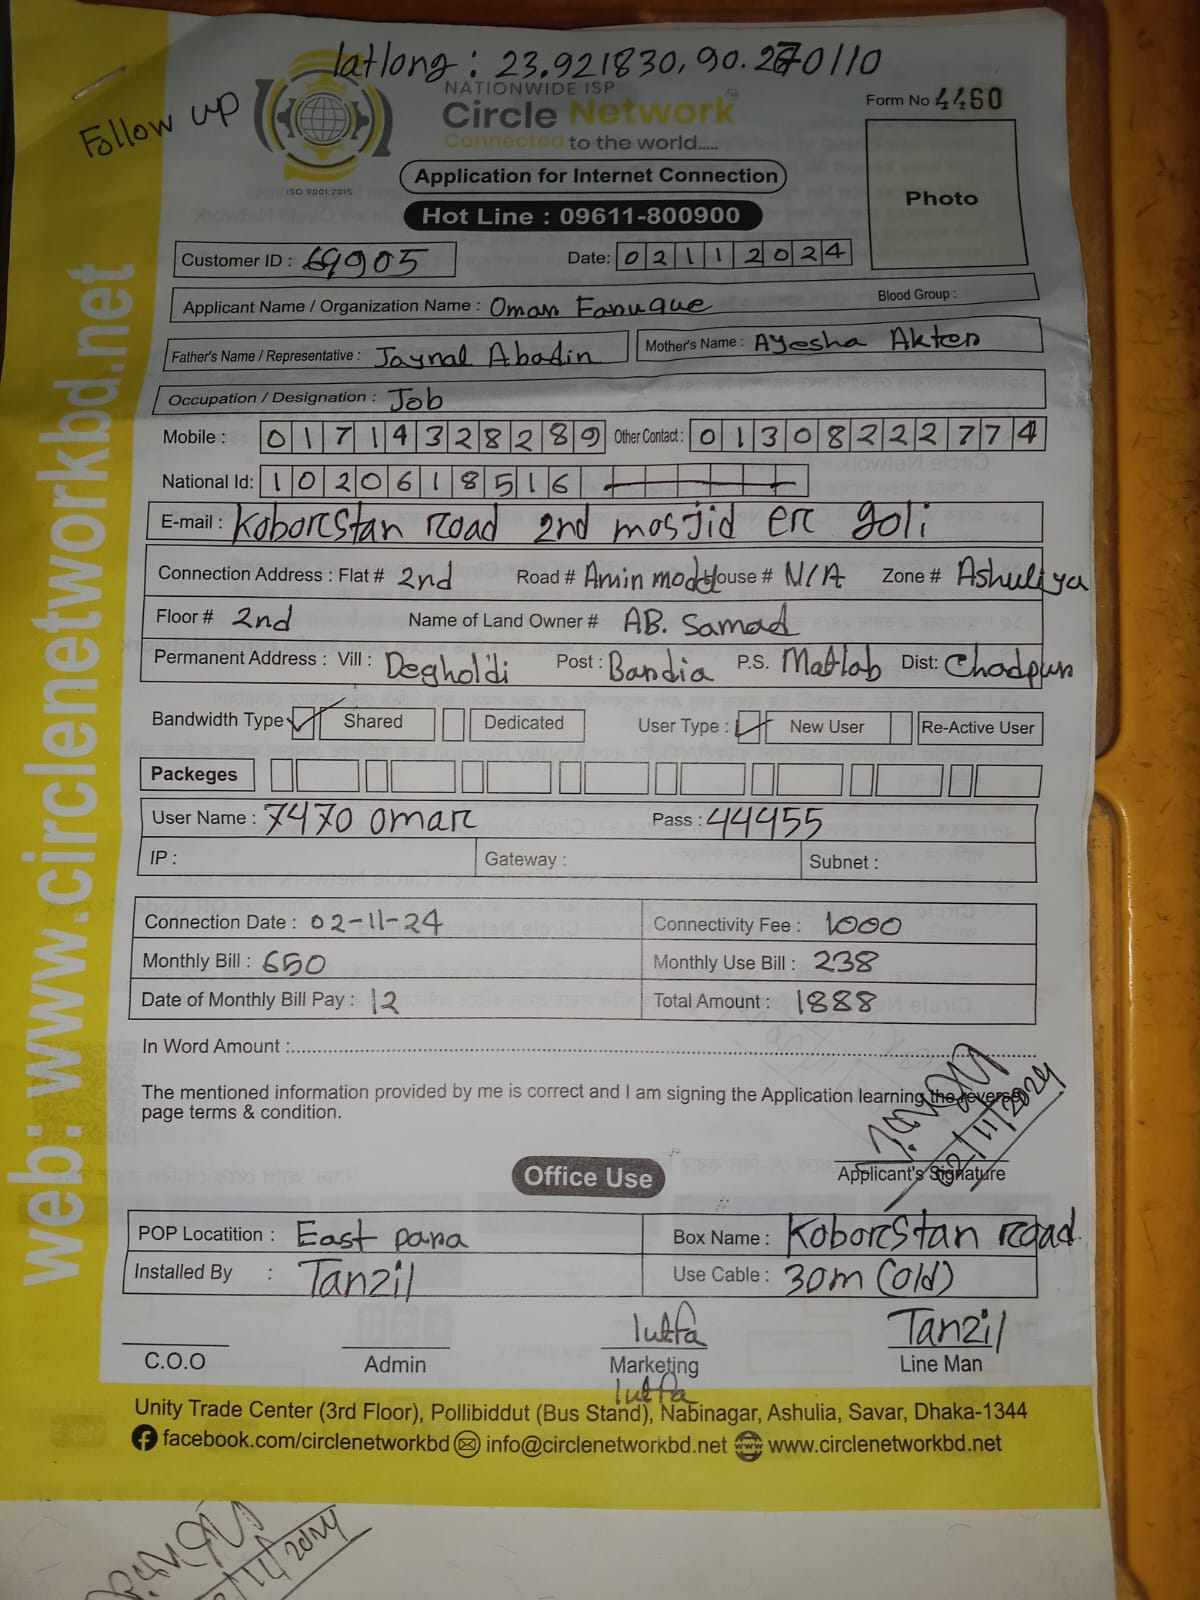 latlong : 23.921830, 90.270110
Follow up
NATIONWIDE ISP
Circle Network
Connected to the world.....
ISO 9001:2015
Form No 4460
Photo
Application for Internet Connection
Hot Line : 09611-800900
Customer ID : 69905
Date: 02112024
Applicant Name / Organization Name : Oman Fanuque
Blood Group :
Father's Name / Representative : Jaynal Abadin
Mother's Name : Ayesha Akten
Occupation / Designation : Job
Mobile : 01714328289
Other Contact : 01308222774
National Id: 1020618516
E-mail : Koborstan road 2nd mosjid er goli
Connection Address : Flat # 2nd Road # Amin modd House # N/A Zone # Ashuliya
Floor # 2nd Name of Land Owner # AB. Samad
Permanent Address : Vill : Degholdi Post : Bandia P.S. Matlab Dist: Chadpur
Bandwidth Type Shared Dedicated User Type : New User Re-Active User
Packeges
User Name : 7470 omar Pass : 44455
IP : Gateway : Subnet :
Connection Date : 02-11-24 Connectivity Fee : 1000
Monthly Bill : 650 Monthly Use Bill : 238
Date of Monthly Bill Pay : 12 Total Amount : 1888
In Word Amount :
The mentioned information provided by me is correct and I am signing the Application learning the reverse
page terms & condition.
02/11/2024
Applicant's Signature
Office Use
POP Locatition : East para Box Name : Koborstan road
Installed By : Tanzil Use Cable : 30m (old)
lutfa Tanzil
C.O.O Admin Marketing Line Man
lutfa
Unity Trade Center (3rd Floor), Pollibiddut (Bus Stand), Nabinagar, Ashulia, Savar, Dhaka-1344
facebook.com/circlenetworkbd info@circlenetworkbd.net www.circlenetworkbd.net
web: www.circlenetworkbd.net